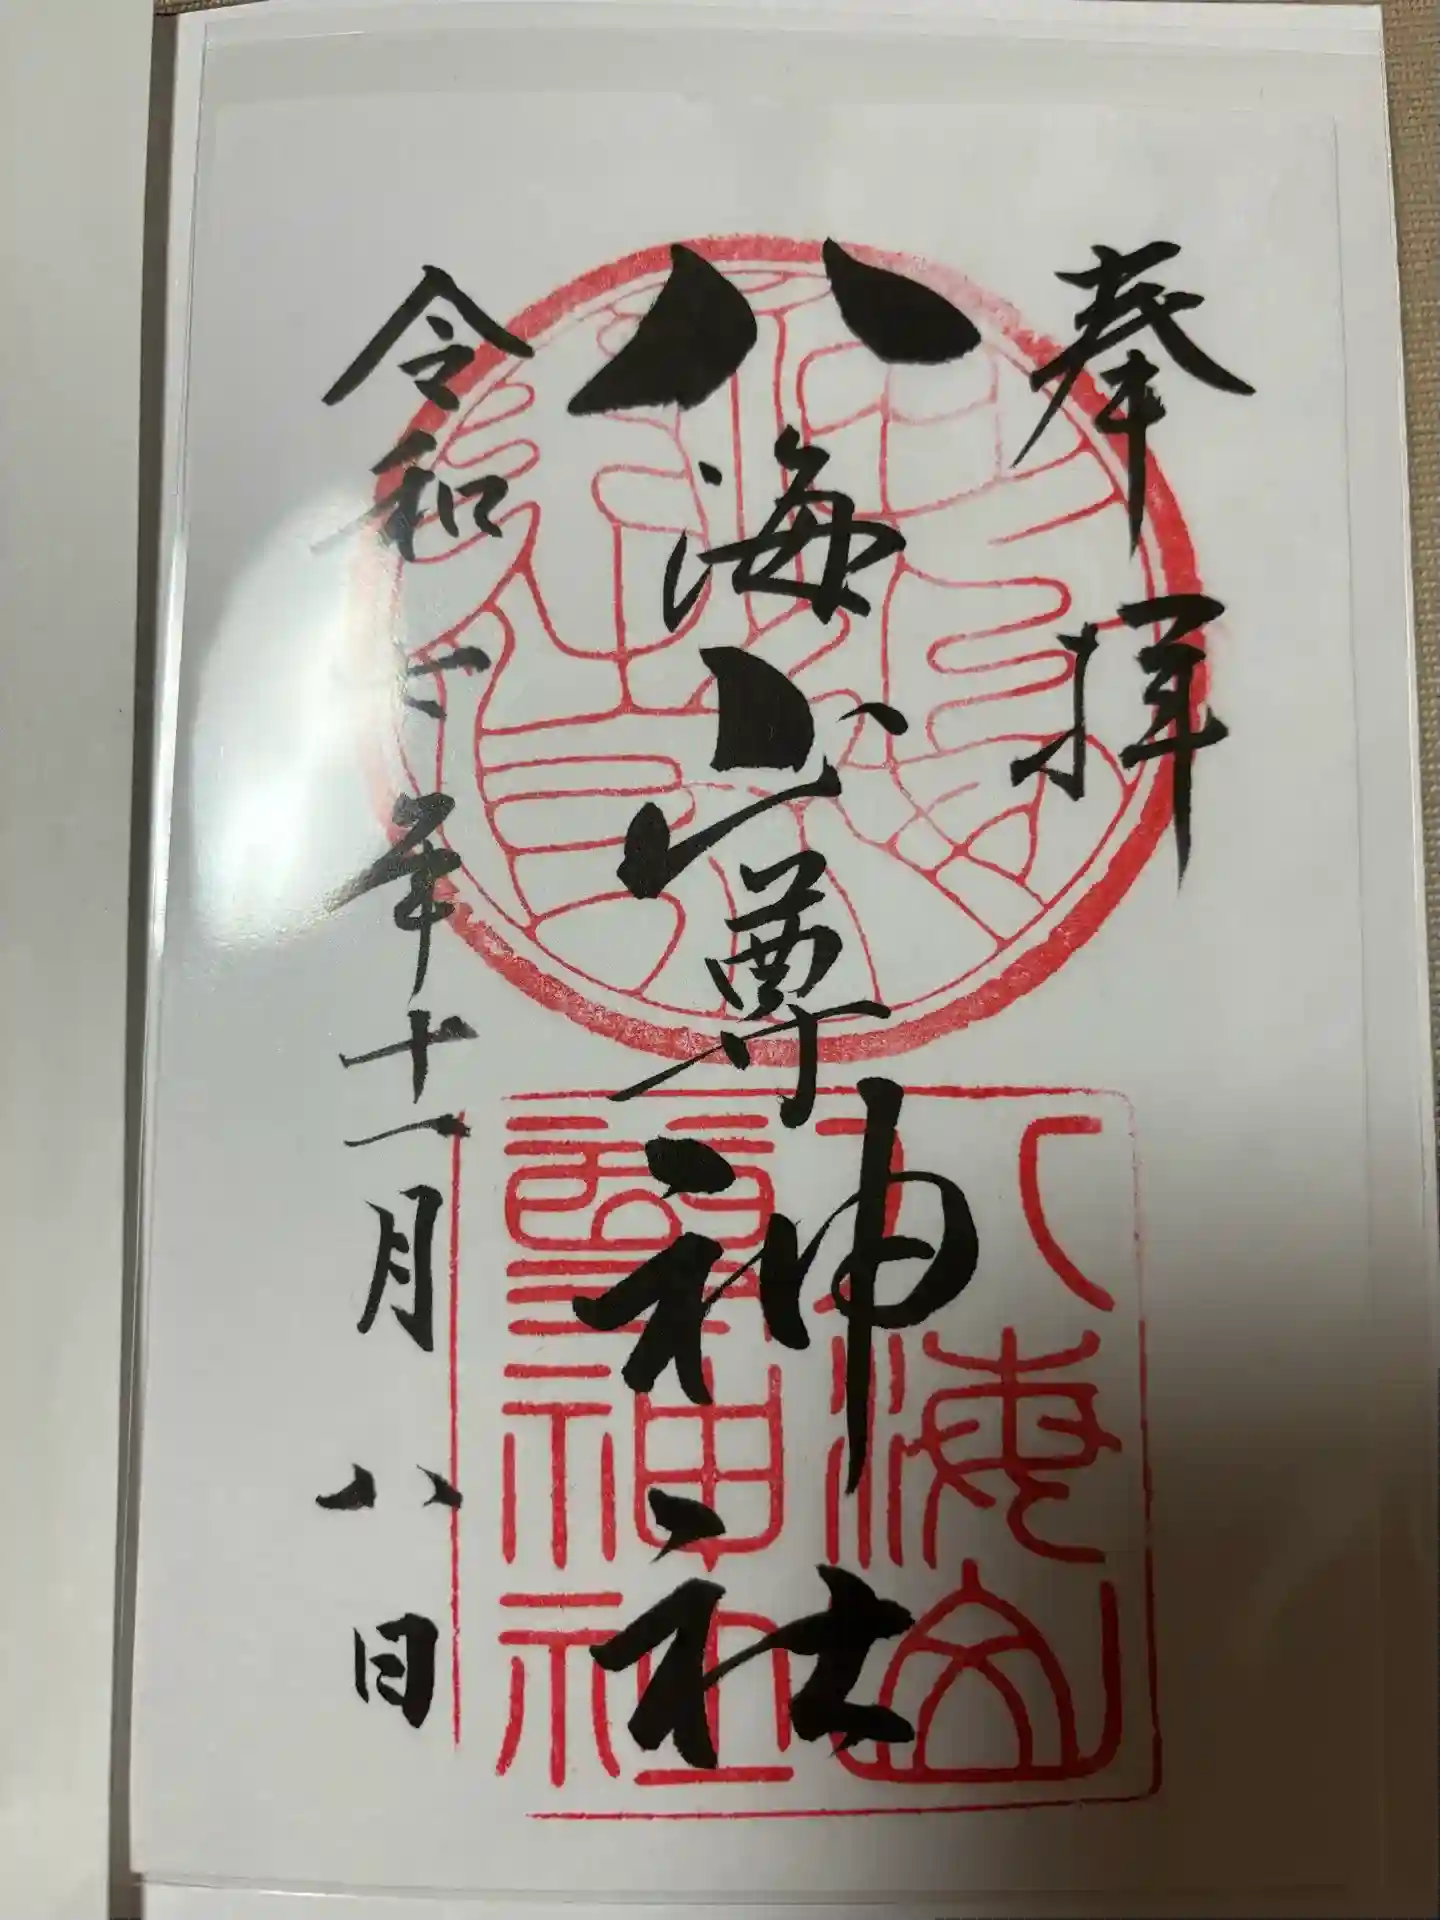 奉拝
八海山尊神社
令和七年十一月八日
八海山
神社